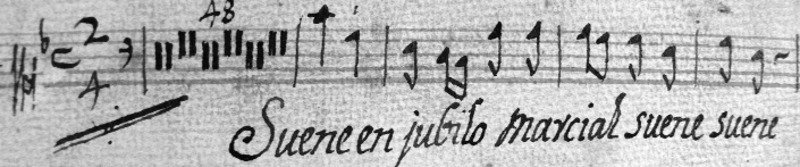 2
4
48
Suene en jubilo marcial suene suene